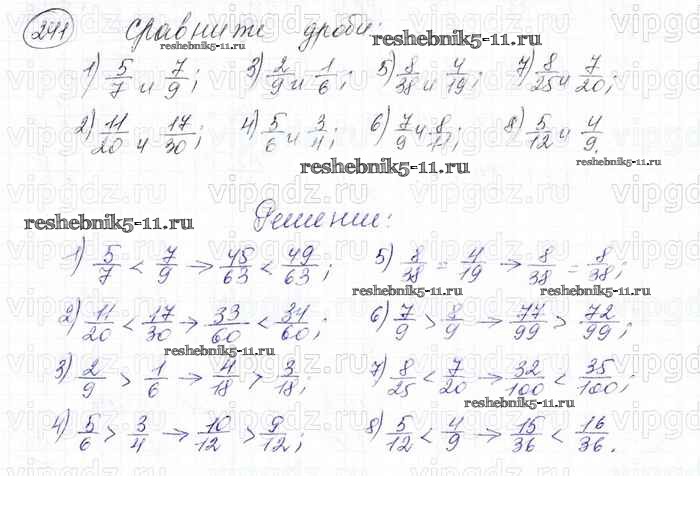 241 Сравните дроби:
reshebnik5-11.ru reshebnik5-11.ru
1) 5/7 и 7/9; 3) 2/9 и 1/6; 5) 8/38 и 4/19; 7) 8/25 и 7/20;
2) 11/20 и 17/30; 4) 5/6 и 3/4; 6) 7/9 и 8/11; 8) 5/12 и 4/9.
reshebnik5-11.ru reshebnik5-11.ru
reshebnik5-11.ru Решение:
1) 5/7 < 7/9 → 45/63 < 49/63; 5) 8/38 = 4/19 → 8/38 = 8/38;
reshebnik5-11.ru reshebnik5-11.ru
2) 11/20 < 17/30 → 33/60 < 34/60; 6) 7/9 > 8/9 → 77/99 > 72/99;
reshebnik5-11.ru
3) 2/9 > 1/6 → 4/18 > 3/18; 7) 8/25 < 7/20 → 32/100 < 35/100;
reshebnik5-11.ru
4) 5/6 > 3/4 → 10/12 > 9/12; 8) 5/12 < 4/9 → 15/36 < 16/36.
vipgdz.ru